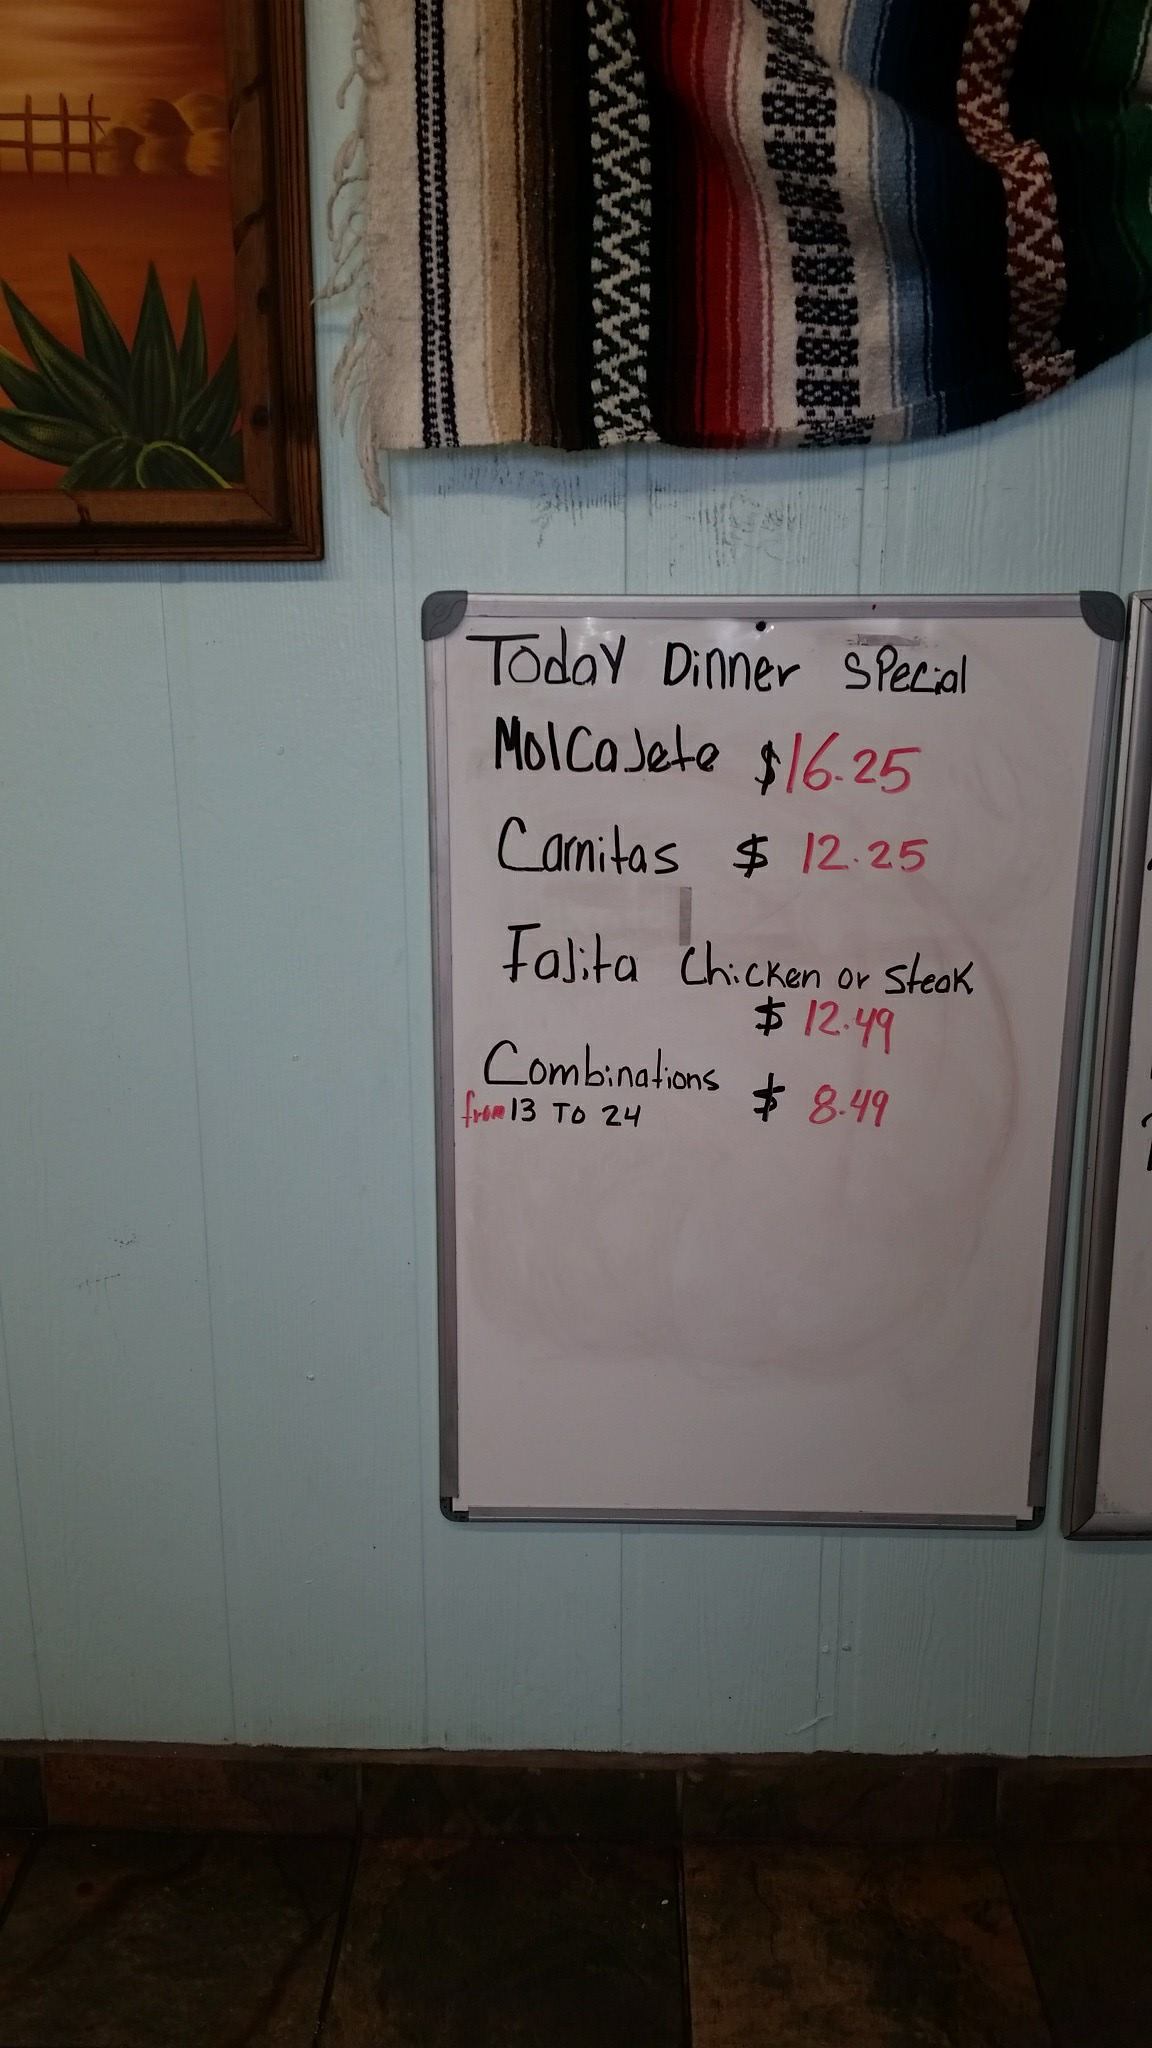 Today Dinner Special
Molcajete $16.25
Carnitas $ 12.25
Fajita Chicken or Steak
$ 12.49
Combinations
from 13 TO 24 $ 8.49